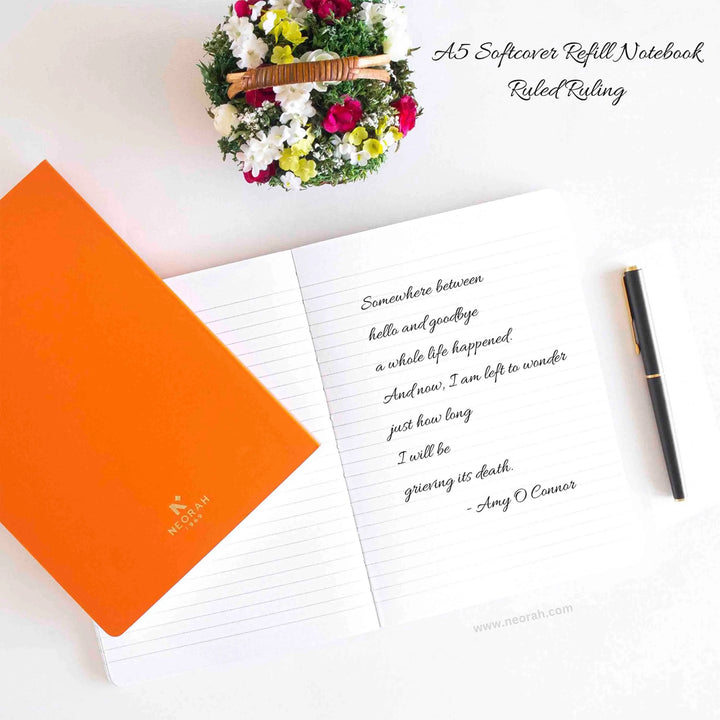 A5 Softcover Refill Notebook
Ruled Ruling
Somewhere between
hello and goodbye
a whole life happened.
And now, I am left to wonder
just how long
I will be
grieving its death.
- Amy O Connor
NEORAH
1969
www.neorah.com